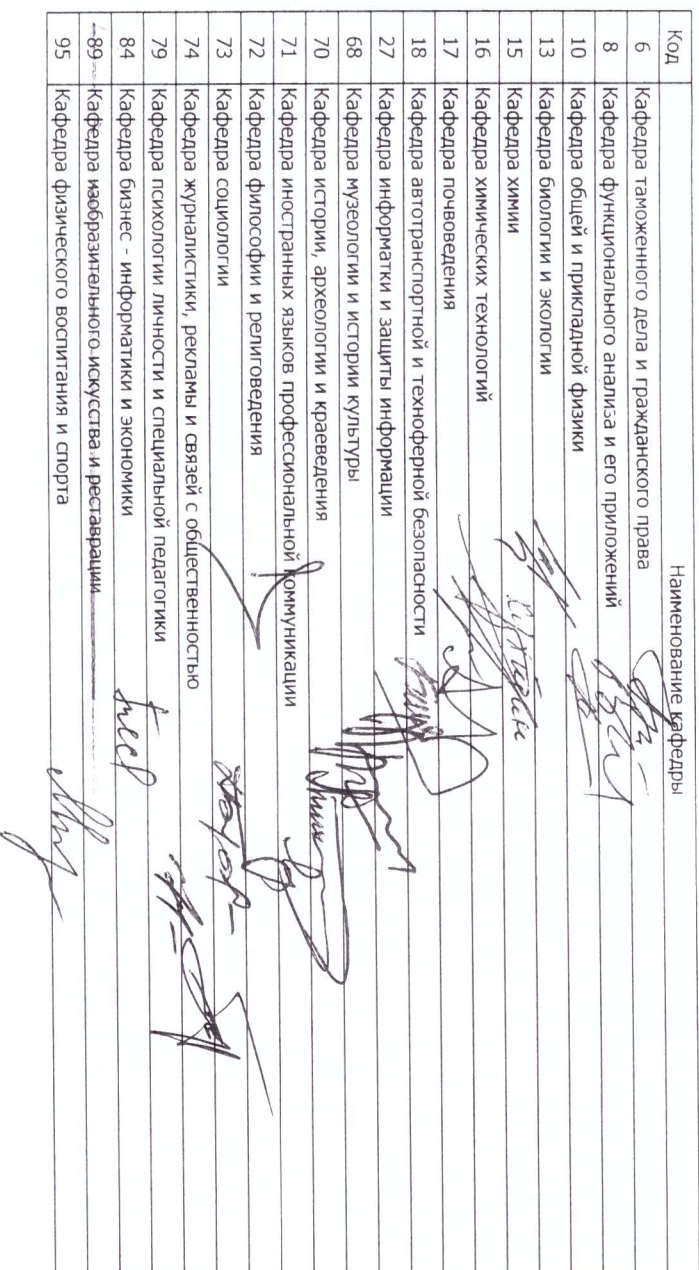 Код Наименование кафедры
6 Кафедра таможенного дела и гражданского права
8 Кафедра функционального анализа и его приложений
10 Кафедра общей и прикладной физики
13 Кафедра биологии и экологии
15 Кафедра химии
16 Кафедра химических технологий
17 Кафедра почвоведения
18 Кафедра автотранспортной и техноферной безопасности
27 Кафедра информатки и защиты информации
68 Кафедра музеологии и истории культуры
70 Кафедра истории, археологии и краеведения
71 Кафедра иностранных языков профессиональной коммуникации
72 Кафедра философии и религоведения
73 Кафедра социологии
74 Кафедра журналистики, рекламы и связей с общественностью
79 Кафедра психологии личности и специальной педагогики
84 Кафедра бизнес - информатики и экономики
89 Кафедра изобразительного искусства и реставрации
95 Кафедра физического воспитания и спорта